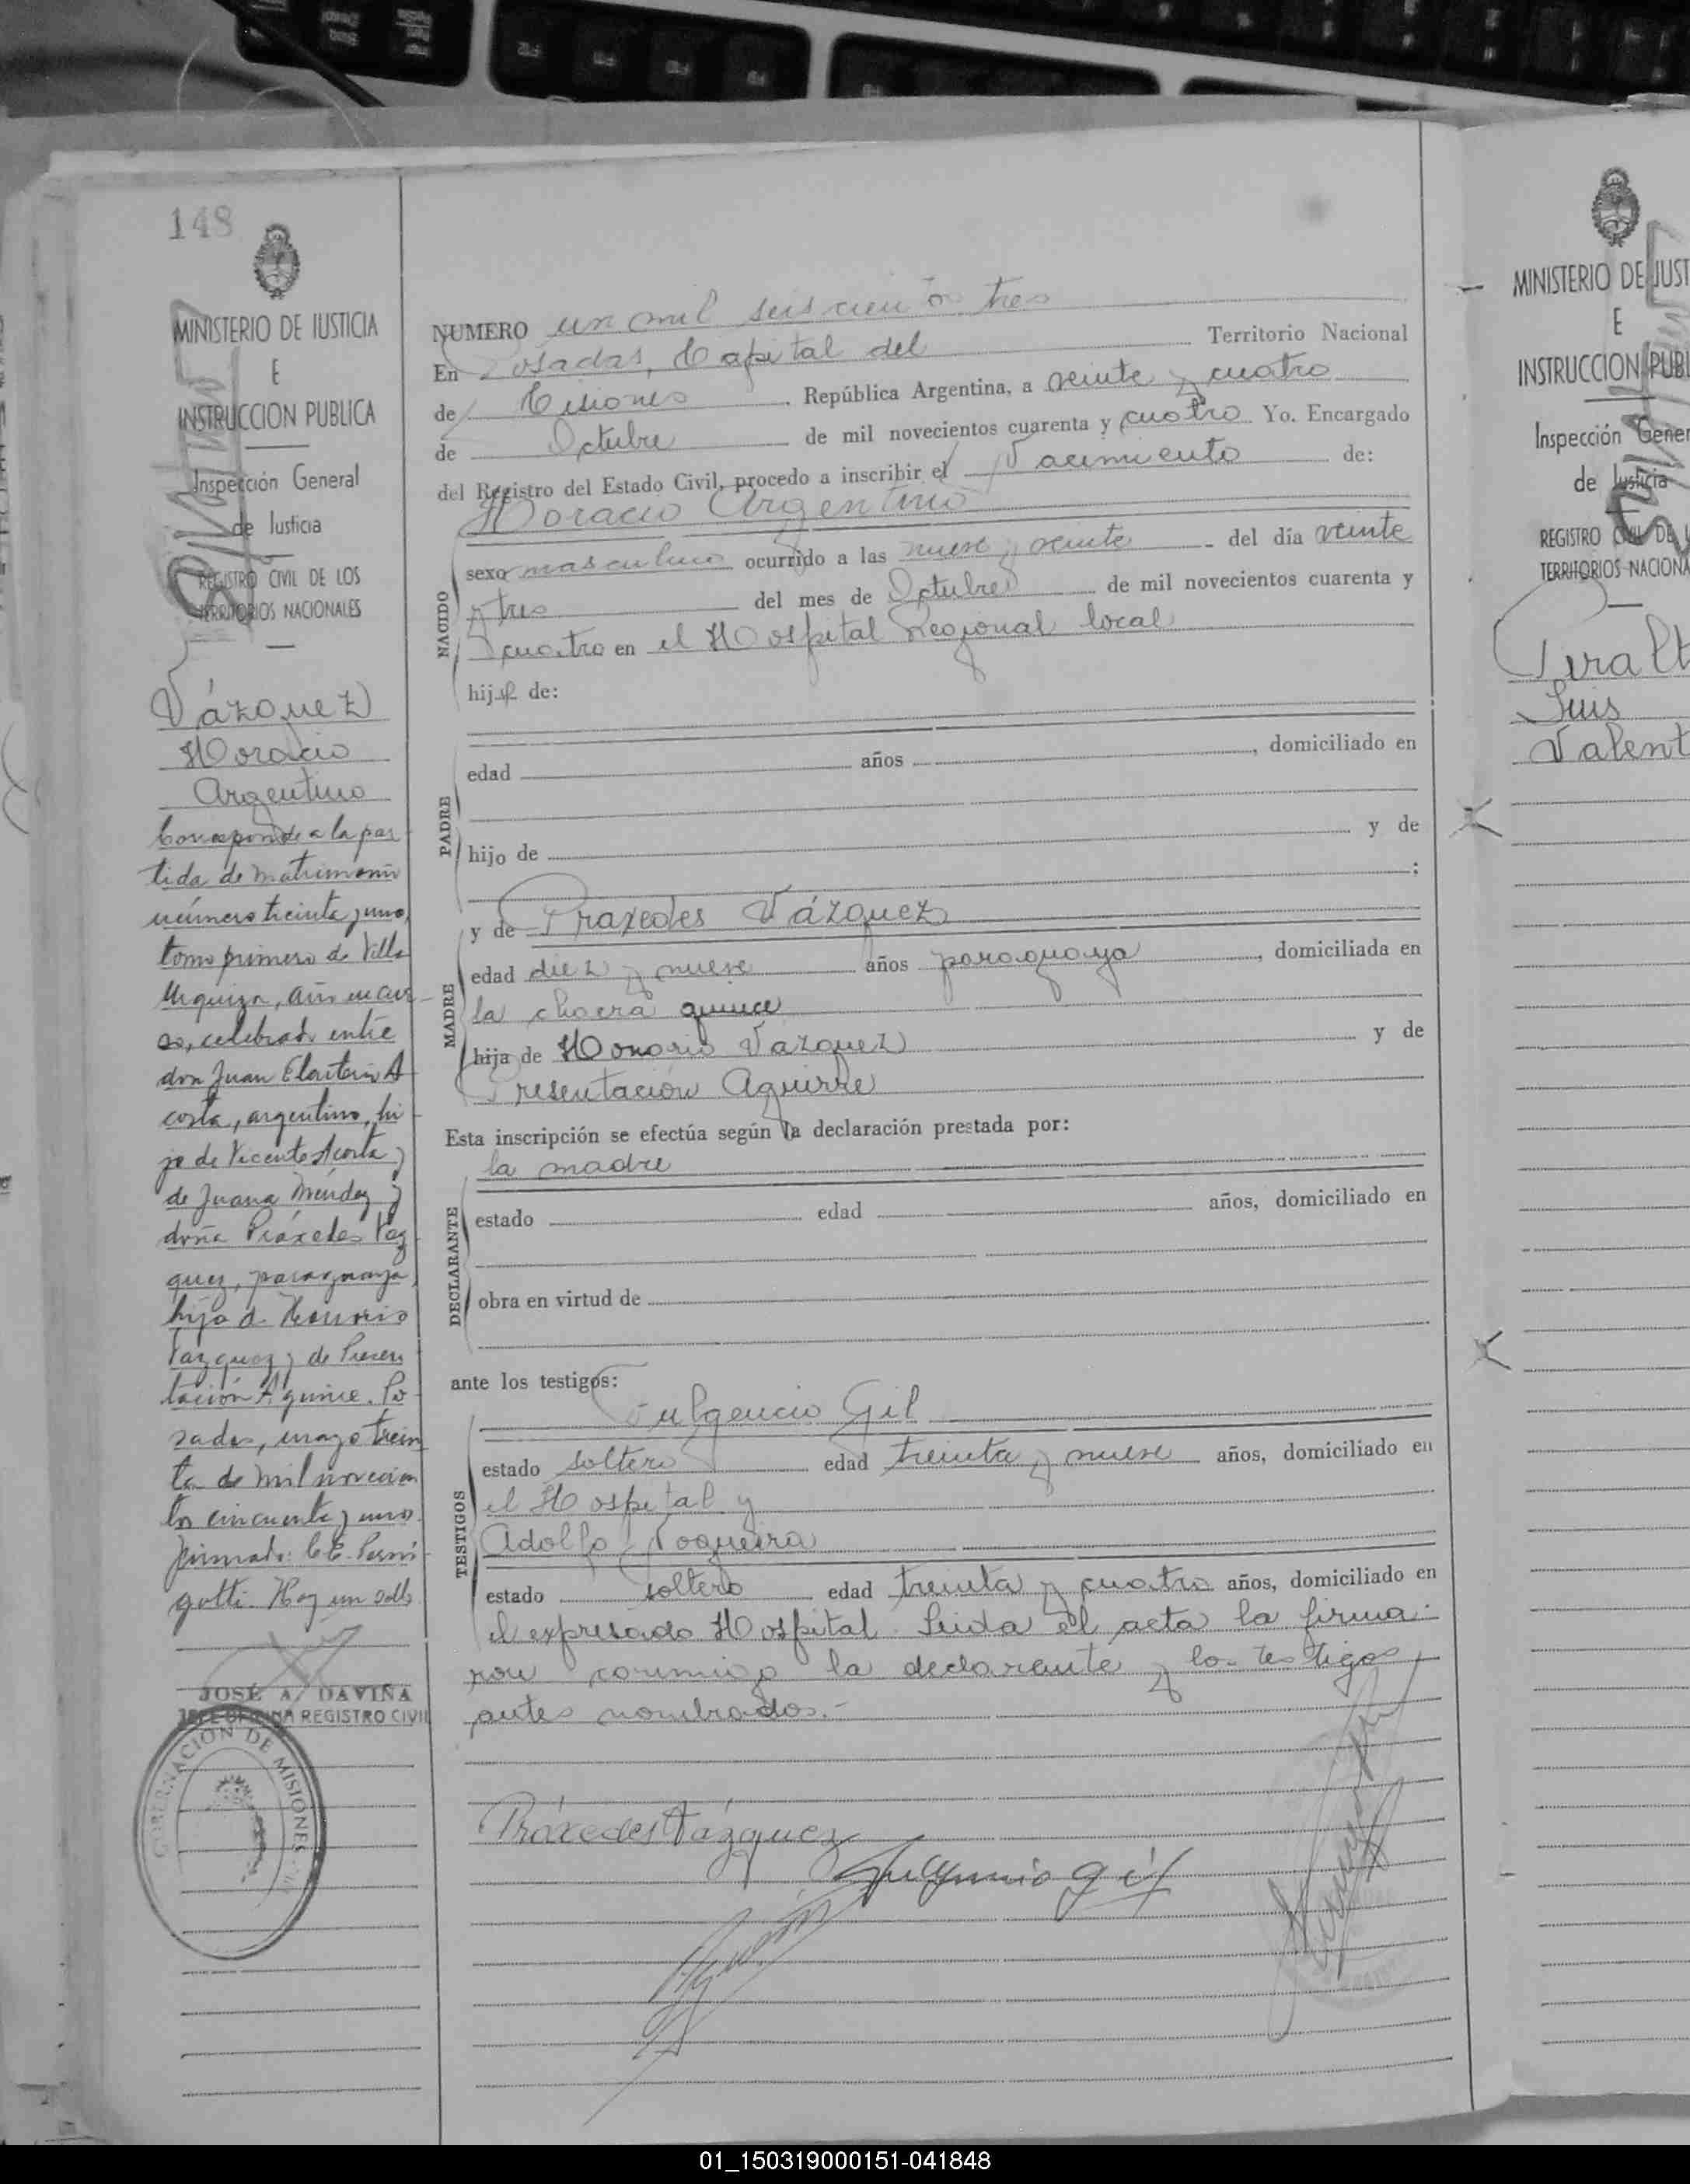 148
MINISTERIO DE JUSTICIA
E
INSTRUCCION PUBLICA
Inspección General
de Justicia
REGISTRO CIVIL DE LOS
TERRITORIOS NACIONALES
Vázquez
Horacio
Argentino
Corresponde a la par
tida de matrimonio
número treinta y uno,
tomo primero de Villa
Urquiza, año en cur
so, celebrado entre
don Juan Eleuterio A
costa, argentino, hi
jo de Vicente Acosta y
de Juana Méndez y
doña Práxedes Vaz
quez, paraguaya,
hija de Honorio
Vazquez y de Presen
tación Aguirre. Po
sadas, mayo trein
ta de mil novecien
tos cincuenta y uno.
firmado: C.E.
Hay un sello
JOSÉ A. DAVIÑA
JEFE OFICINA REGISTRO CIVIL
GOBERNACIÓN DE MISIONES
NUMERO un mil seiscientos tres
En Posadas, Capital del Territorio Nacional
de Misiones República Argentina, a veinte y cuatro
de Octubre de mil novecientos cuarenta y cuatro Yo. Encargado
del Registro del Estado Civil, procedo a inscribir el Nacimiento de:
Horacio Argentino
NACIDO
sexo masculino ocurrido a las nueve y veinte del día veinte
y tres del mes de Octubre de mil novecientos cuarenta y
cuatro en el Hospital Regional local
hijo de:
PADRE
edad años , domiciliado en
hijo de y de
;
y de Praxedes Vázquez
MADRE
edad diez y nueve años paraguaya , domiciliada en
la chacra quince
hija de Honorio Vazquez y de
Presentación Aguirre
Esta inscripción se efectúa según la declaración prestada por:
la madre
DECLARANTE
estado edad años, domiciliado en
obra en virtud de
ante los testigos:
Fulgencio Gil
TESTIGOS
estado soltero edad treinta y nueve años, domiciliado en
el Hospital y
Adolfo Nogueira
estado soltero edad treinta y cuatro años, domiciliado en
el expresado Hospital. Leida el acta la firma-
ron conmigo la declarante y los testigos
antes nombrados.-
Práxedes Vázquez
Fulgencio Gil
MINISTERIO DE JUST
E
INSTRUCCION PUBL
Inspección Gener
de Justicia
REGISTRO CIVIL DE L
TERRITORIOS NACIONA
Peralt
Luis
Valent
01_150319000151-041848